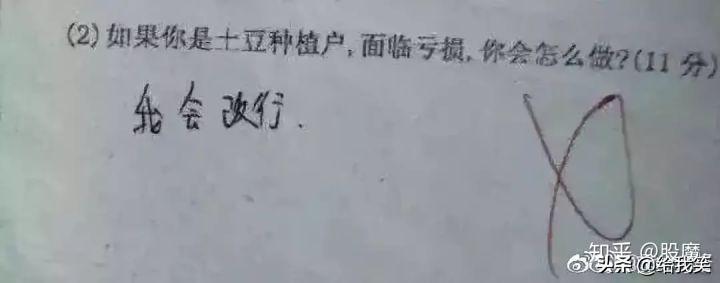 (2)如果你是土豆种植户,面临亏损,你会怎么做?(11 分)
我会改行.
知乎 @股魔
头条 @给我笑